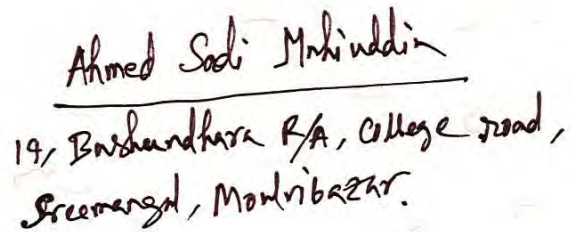 Ahmed Sadi Mohiuddin
19, Bashundhara R/A, College road,
Sreemangal, Moulvibazar.